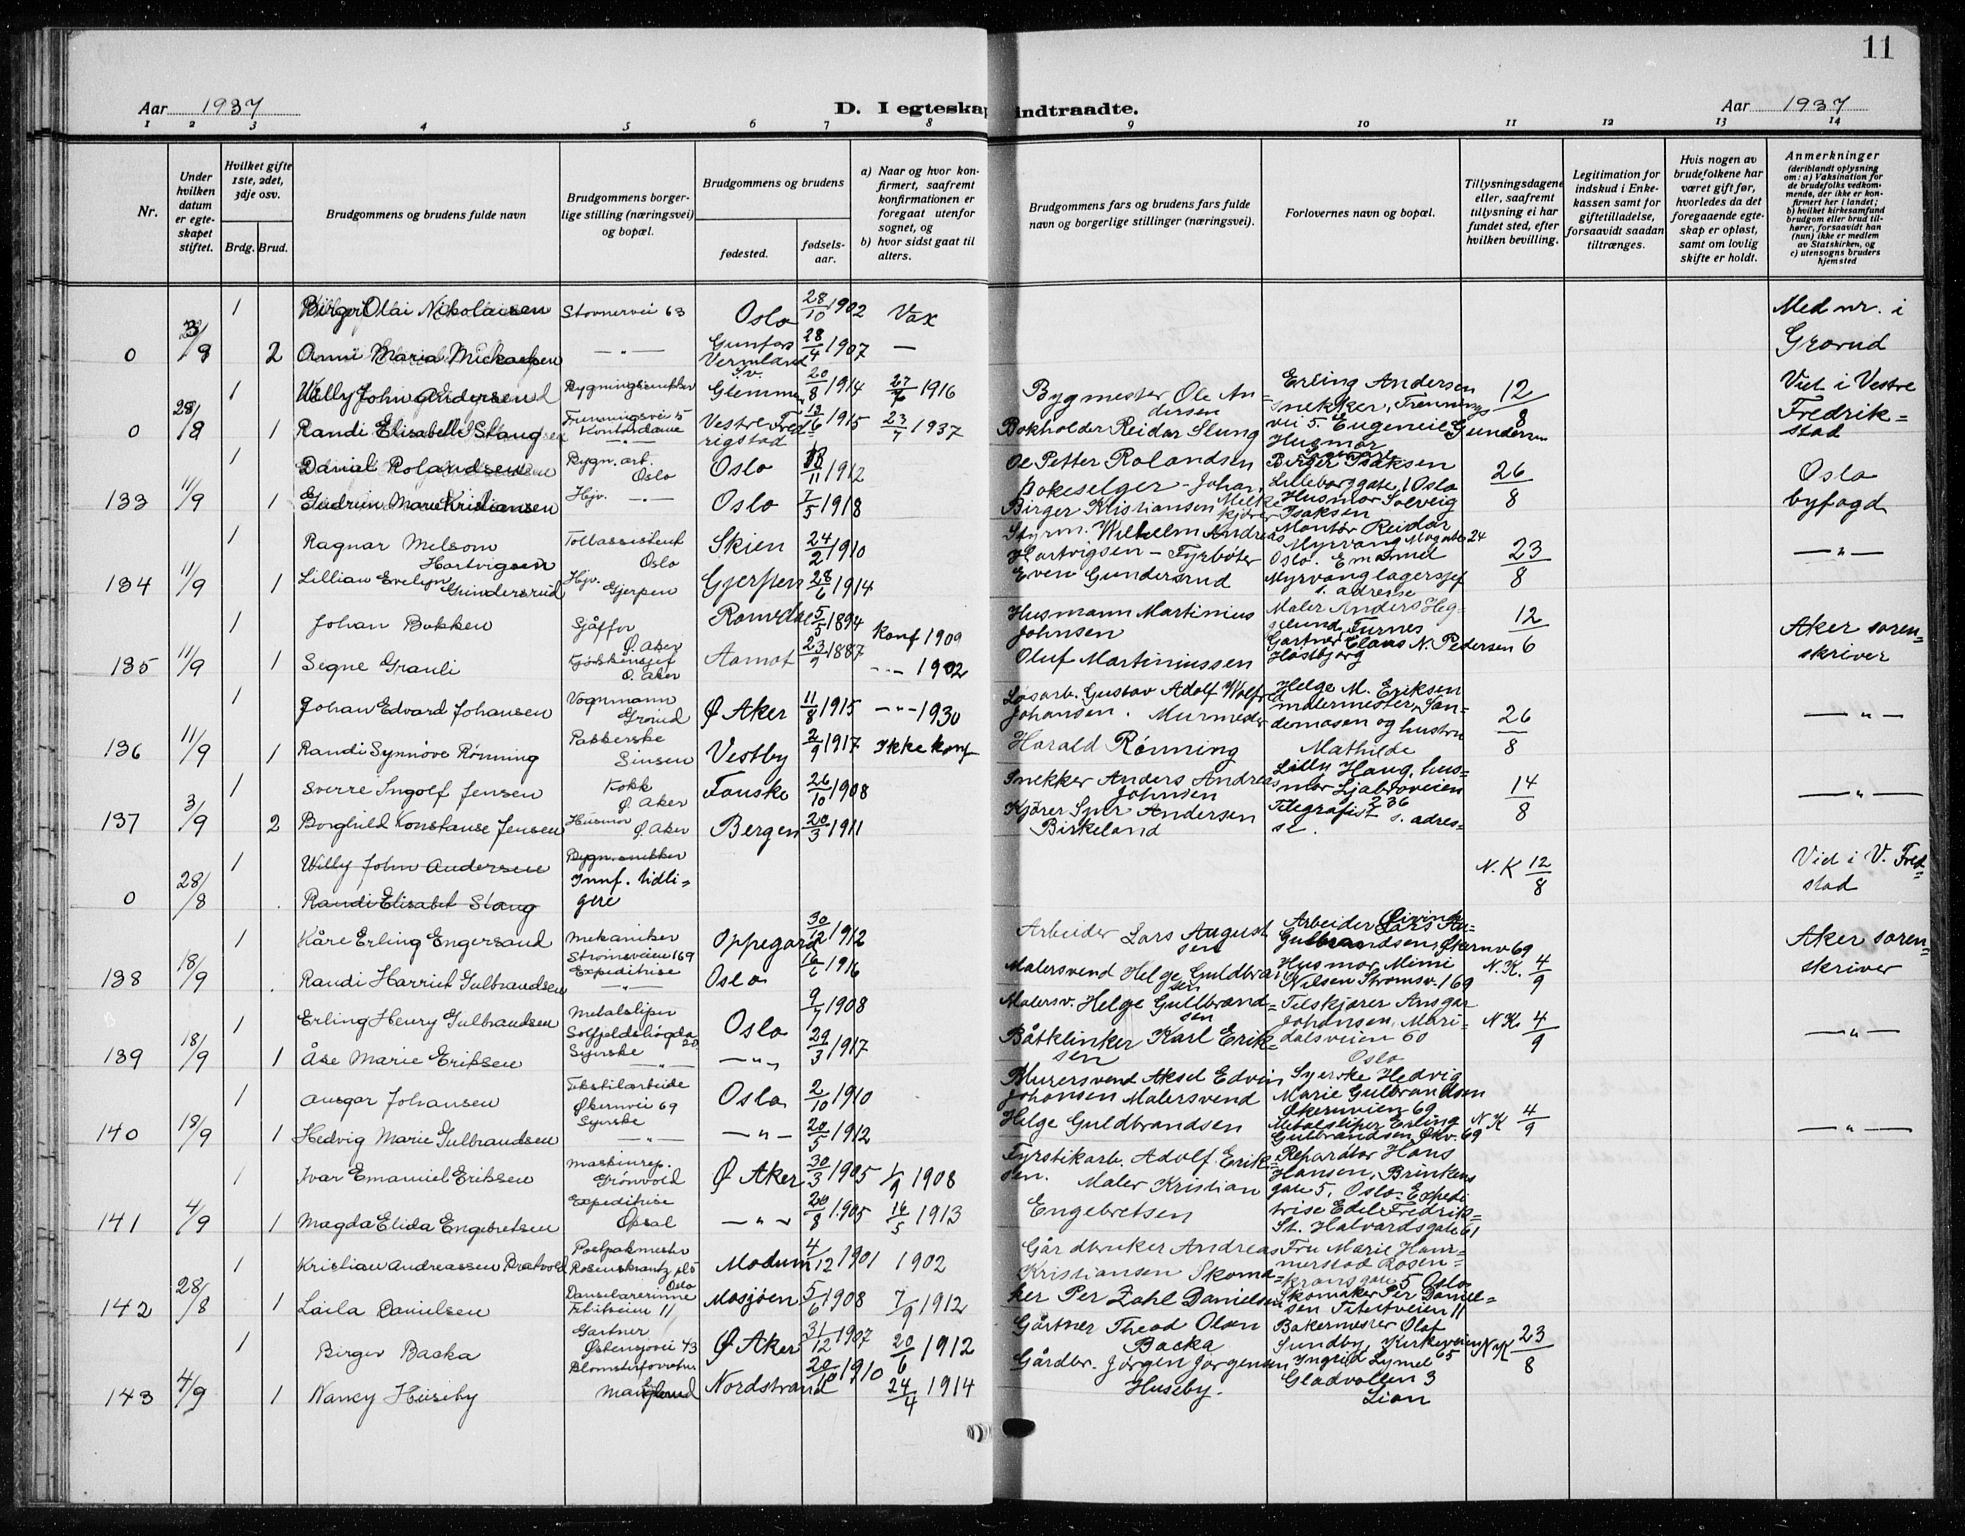 11
Aar 1937
D. I egteskap indtraadte.
Aar 1937
1 2 3 4 5 6 7 8 9 10 11 12 13 14
Nr.
Under hvilken datum er egteskapet stiftet.
Hvilket gifte 1ste, 2det, 3dje osv.
Brdg. Brud.
Brudgommens og brudens fulde navn
Brudgommens borgerlige stilling (næringsvei) og bopæl.
Brudgommens og brudens
fødested.
fødselsaar.
a) Naar og hvor konfirmert, saafremt konfirmationen er foregaat utenfor sognet, og
b) hvor sidst gaat til alters.
Brudgommens fars og brudens fars fulde navn og borgerlige stillinger (næringsvei).
Forlovernes navn og bopæl.
Tillysningsdagene eller, saafremt tillysning ei har fundet sted, efter hvilken bevilling.
Legitimation for indskud i Enkekassen samt for giftetilladelse, forsaavidt saadan tiltrænges.
Hvis nogen av brudefolkene har været gift før, hvorledes da det foregaaende egteskap er opløst, samt om lovlig skifte er holdt.
Anmerkninger (deriblandt oplysning om: a) Vaksination for de brudefolks vedkommende, der ikke er konfirmert her i landet; b) hvilket kirkesamfund brudgom eller brud tilhører, forsaavidt han (hun) ikke er medlem av Statskirken, og c) utensogns bruders hjemsted
1 Birger Olai Nikolaisen Stovnervei 63 Oslo 28/10 1902 Vax Med nr. i
0 2 Maria Mickaelsen — " — Vermland Sv. 28/4 1907 — Grorud
1 Willy John Andersen Bygningssnekker Glemmen 20/8 1914 1916 Bygmester Ole Andersen Erling Andersen snekker, 12/8 Viet i Vestre
0 28/8 1 Randi Elisabeth Stang Kontordame Vestre Fredrikstad 1915 1937 Bokholder Reidar Slung vei 5. Gundersen Husmor Fredrikstad
1 Daniel Rolandsen Bygn. arb. Oslo Oslo 1912 Ole Petter Rolandsen Birger Isaksen Lilleborggate 1 Oslo 26/8 Oslo
133 11/9 1 Gudrun Marie Kristiansen Hjv. — " — Oslo 7/5 1918 Birger Kristiansen Husmor Solveig Isaksen byfogd
1 Ragnar Melsom Hartvigsen Tollassistent Oslo Skien 24/2 1910 Styrm. Wilhelm Andreas Hartvigsen — Fyrbøter Montør Reidar Myrvang 23/8 — " —
134 11/9 1 Lillian Evelyn Gundersrud Hjv. Gjerpen Gjerpen 28/6 1914 Even Gundersrud Oslo. Emanuel Myrvang lagersjef s. adresse
1 Johan Bakken Sjåffør Ø. Aker Romedal 5/5 1894 konf 1909 Husmann Martinius Johnsen Maler Anders Furnes 12/6 Aker soren-
135 11/9 1 Segne Granli Ø. Aker Aamot 23/9 1887 — " — 1902 Oluf Martiniussen Gartner Claus N. Pedersen skriver
1 Johan Edvard Johansen Vognmann Grorud Ø Aker 11/8 1915 — " — 1930 Løsarb. Gustav Adolf Wolfred Johansen. Murmester Helge M. Eriksen malermester, 26/8 — " —
136 11/9 1 Randi Synnøve Rønning Pakkerske Sinsen Vestby 2/9 1917 Ikke konf Harald Rønning og hustru Mathilde
1 Sverre Ingolf Jensen Kokk Ø. Aker Fauske 26/10 1908 Snekker Anders Andreas Johnsen Lilly Haug, husmor Ljabroveien 236 14/8 — " —
137 3/9 2 Borghild Konstanse Jensen Husmor Ø Aker Bergen 20/3 1911 Kjører Andersen Birkeland Telegrafist s. adresse.
1 Willy John Andersen Bygn. snekker N.K 12/8 Vid i V. Fred-
0 28/8 Randi Elisabet Stang Innf. tidligere stad
1 Kåre Erling Engersand Mekaniker Strømsveien 169 Oppegård 30/12 1912 Arbeider Lars Augustsen Arbeider Øivind Gulbrandsen, Økernv 69 Aker soren-
138 18/9 Randi Harriet Gulbrandsen Expeditrise — " — Oslo 16/6 1916 Malersvend Helge Guldbrandsen Husmor Mimi Nilsen Strømsv. 169 N.K. 4/9 skriver
1 Erling Henry Gulbrandsen Metalsliper Solfjeldshøgda 20 Oslo 9/7 1908 Malersv. Helge Gullbrandsen Filskjærer Ansgar Johansen, Maridalsveien 60 Oslo N.K. 4/9 — " —
139 18/9 1 Åse Marie Eriksen Syerske — " — — " — 29/3 1917 Båtklinker Karl Eriksen
1 Ansgar Johansen Tekstilarbeide Økernvei 69 Oslo 2/10 1910 Murersvend Aksel Edvin Johansen Malersvend Syerske Hedvig Marie Gulbrandsen Økernveien 69
140 18/9 1 Hedvig Marie Gulbrandsen Syerske — " — — " — 20/5 1912 Helge Guldbrandsen Metalsliper Erling Gulbrandsen, Økv. 69 N K 4/9 — " —
1 Ivar Emanuel Eriksen Maskinrep. Grønvold Ø Aker 30/3 1905 1908 Fyrstikarb. Adolf Eriksen. Maler Kristian Reparatør Hans Hansen, Brinkens gate 5, Oslo.
141 4/9 1 Magda Elida Engebretsen Expeditrise Opsal — " — 20/8 1905 16/5 1913 Engebretsen Expeditrise Edel Fredrik- St. Halvardsgate 61
1 Kristian Andreassen Bratvold Postpakmester Rosenkrantz pl 5 Oslo Modum 4/12 1901 1902 Gårdbruker Andreas Kristiansen Skomaker Fru Marie Hammerstad Rosenkransgate 5 Oslo
142 28/8 1 Laila Danielsen Danselærerinne 11 Mosjøen 5/6 1908 7/9 1912 Per Zahl Danielsen Skomaker Per Danielsen 11
1 Birger Backa Gartner Østensjøvei 43 Ø Aker 31/12 1907 20/6 1912 Gårtner Theod Olsen Backa Bakermester Olaf Sundby, Kirkeveien 65 N K 23/8
143 4/9 1 Nancy Huseby Manglerud Nordstrand 20/10 1910 24/4 1914 Gårdbr. Jørgen Jørgensen Huseby. Ingrid Lymel Gladvollen 3 Lian